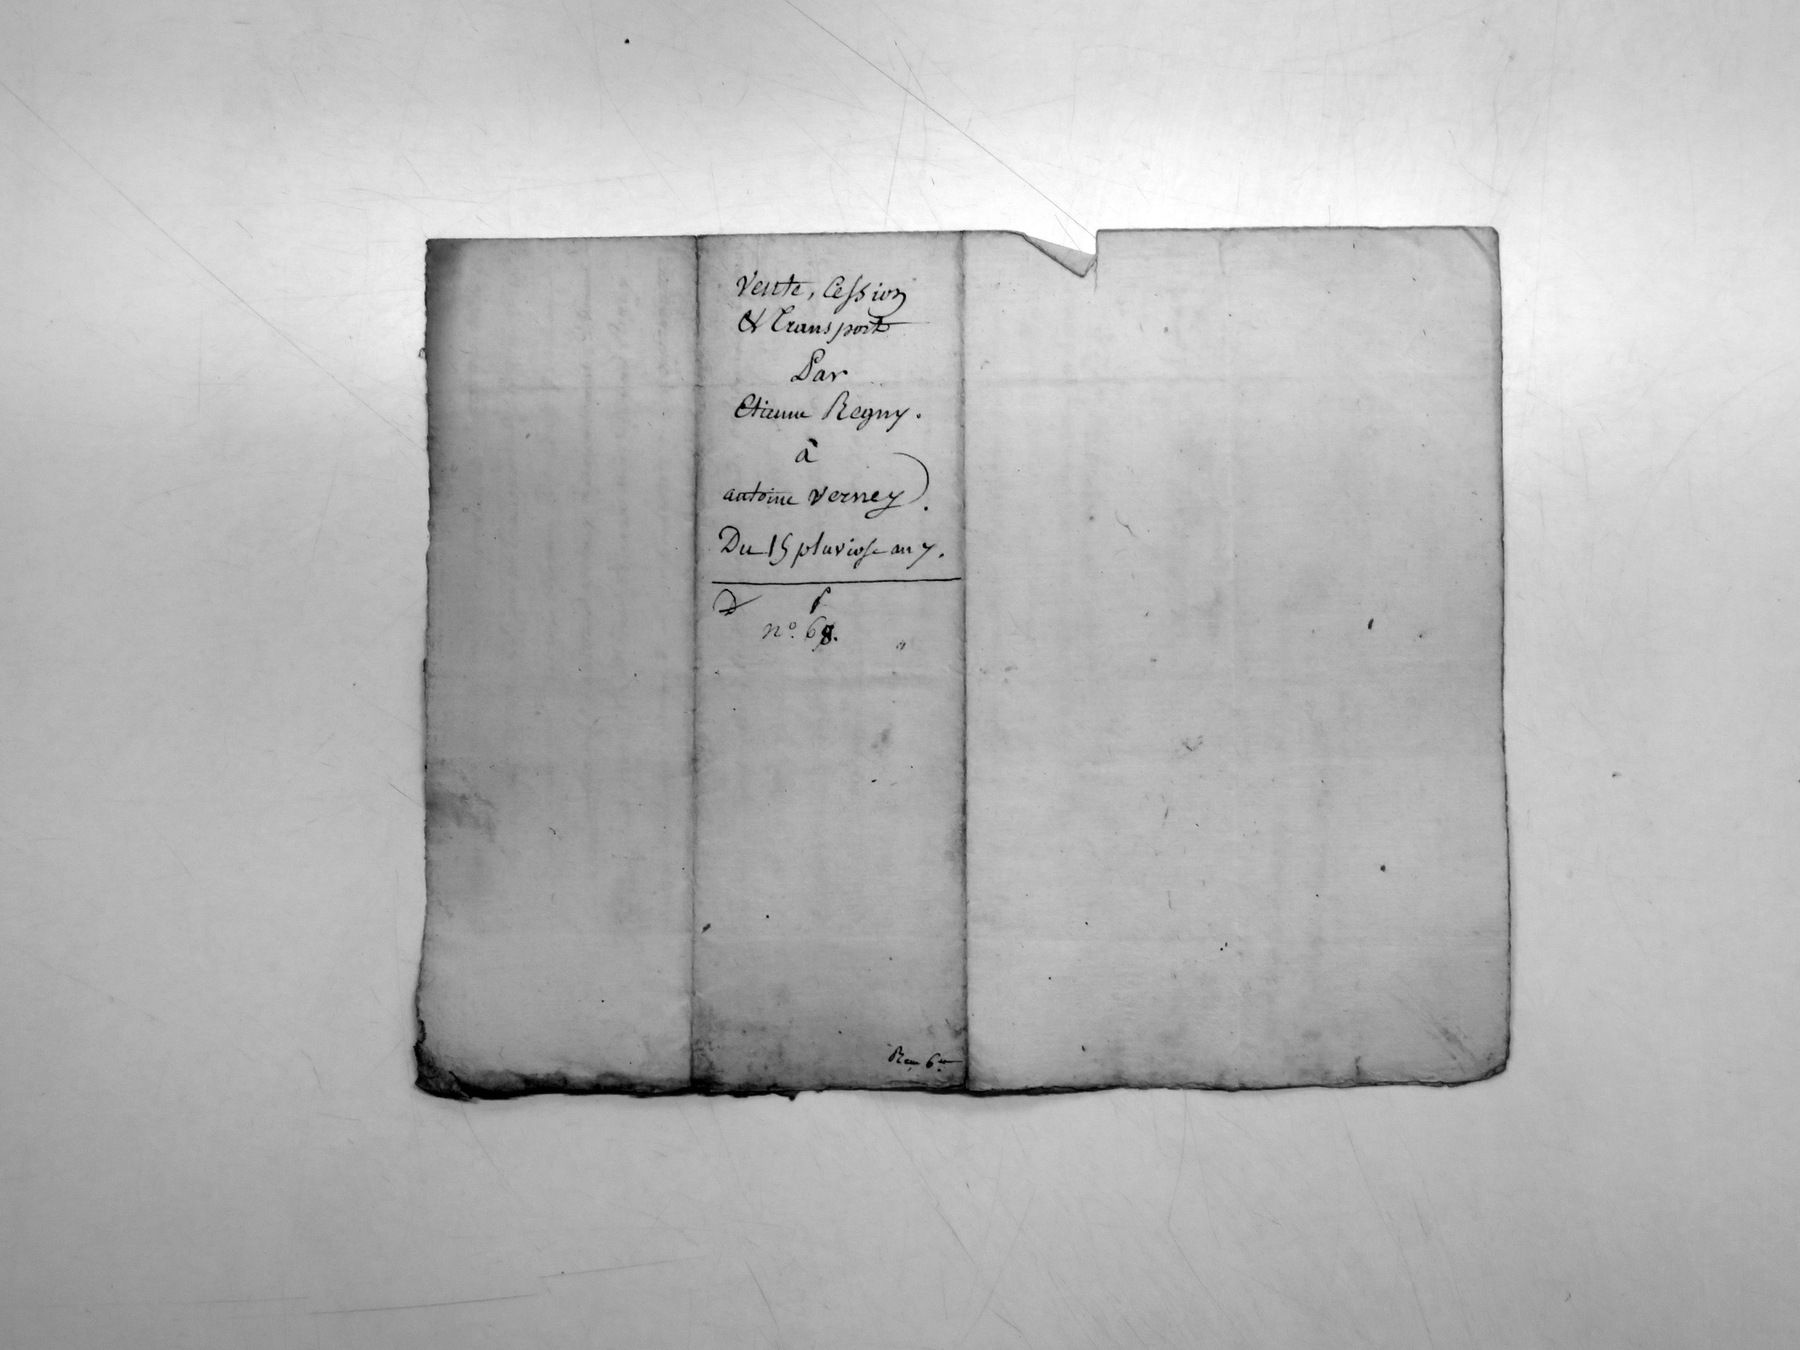 Vente, Cession
& Transport
Par
Etienne Regny.
à
antoine Verney.
Du 15 pluviose an 7.
n.° 68.